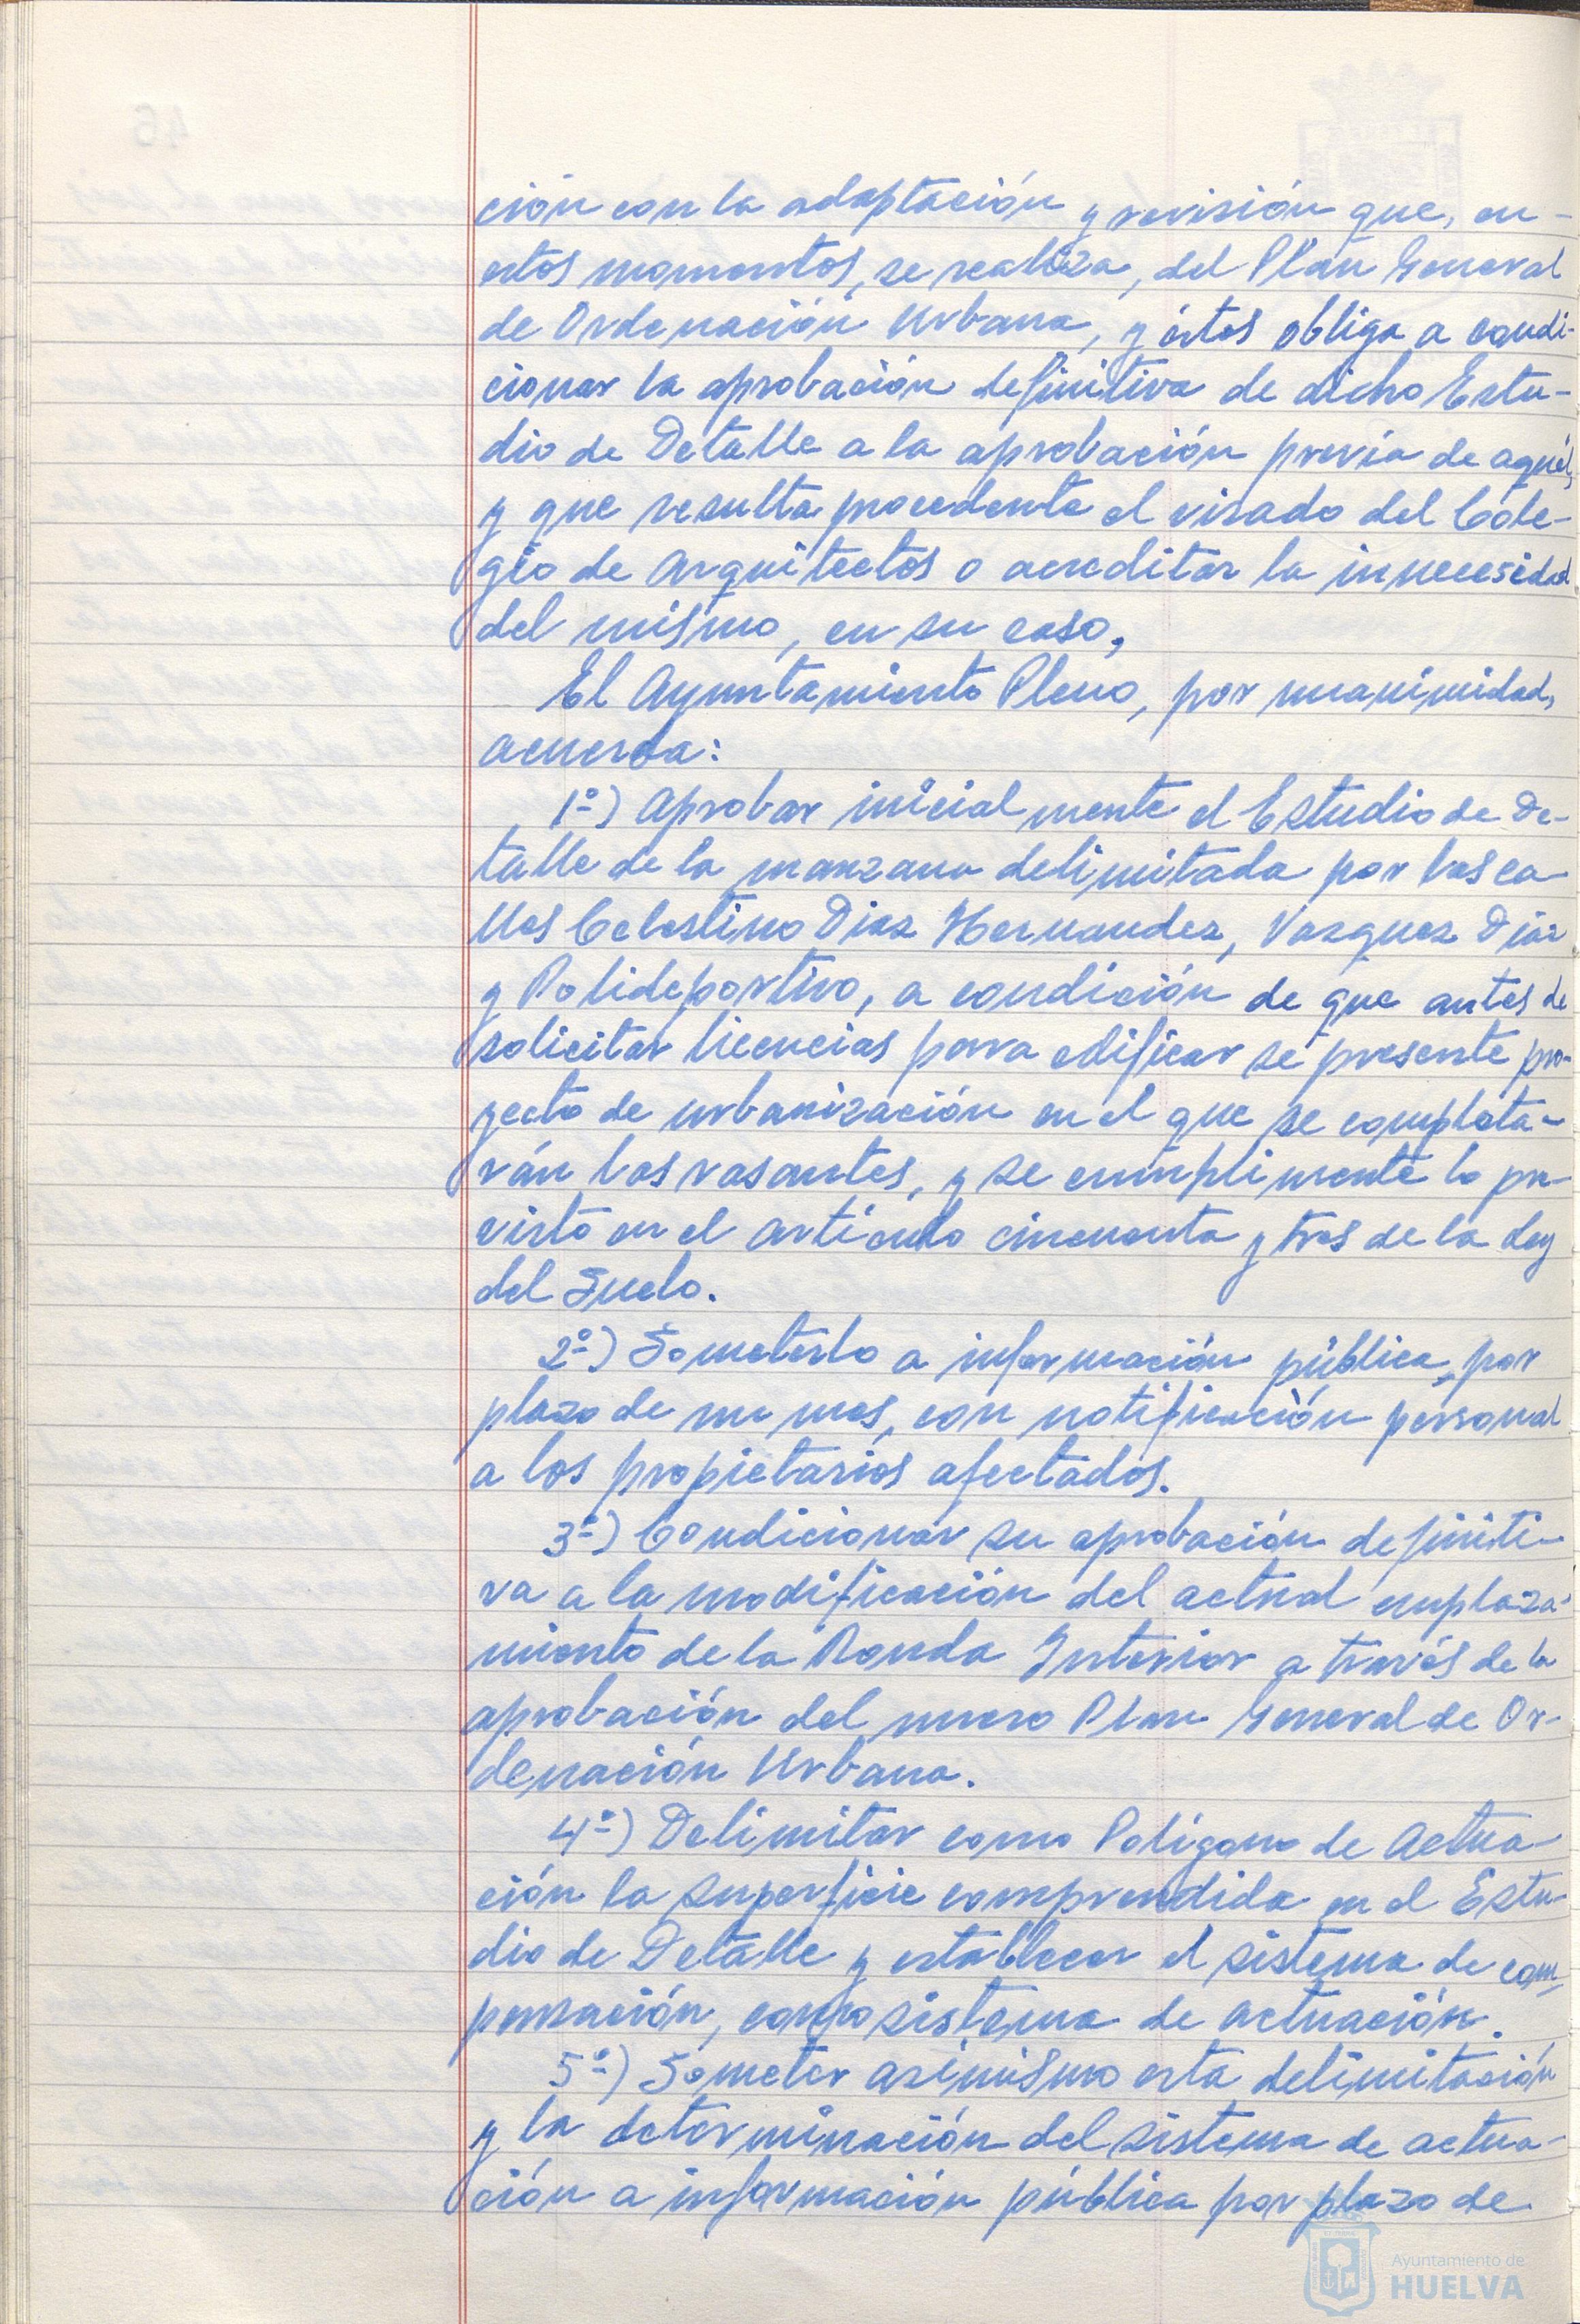 ción con la adaptación y revisión que, en
estos momentos, se realiza, del Plan General
de Ordenación Urbana, y éstos obliga a condi-
cionar la aprobación definitiva de dicho Estu-
dio de Detalle a la aprobación previa de aquél,
y que resulta procedente el visado del Cole-
gio de Arquitectos o acreditar la innecesidad
del mismo, en su caso,
El Ayuntamiento Pleno, por unanimidad,
acuerda:
1º) Aprobar inicialmente el Estudio de De-
talle de la manzana delimitada por las ca-
lles Celestino Díaz Hernández, Vazquez Díaz
y Polideportivo, a condición de que antes de
solicitar licencias para edificar se presente pro-
yecto de urbanización en el que se completa-
rán las rasantes, y se cumplimente lo pre-
visto en el artículo cincuenta y tres de la Ley
del Suelo.
2º) Someterlo a información pública, por
plazo de un mes, con notificación personal
a los propietarios afectados.
3º) Condicionar su aprobación definiti-
va a la modificación del actual emplaza-
miento de la Ronda Interior a través de la
aprobación del nuevo Plan General de Or-
denación Urbana.
4º) Delimitar como Polígono de Actua-
ción la superficie comprendida en el Estu-
dio de Detalle y establecer el sistema de com-
pensación, como sistema de actuación.
5º) Someter asimismo esta delimitación
y la determinación del sistema de actua-
ción a información pública por plazo de
Ayuntamiento de
HUELVA